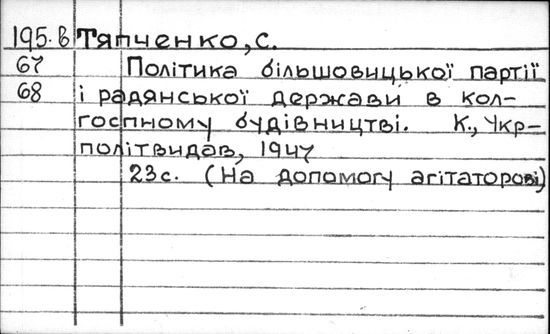 195.В Тяпченко, С.
67 Політика більшовицької партії
68 і радянської держави в кол-
госпному будівництві. К., Укр-
політвидав, 1947
23с. (На допомогу агітаторові)